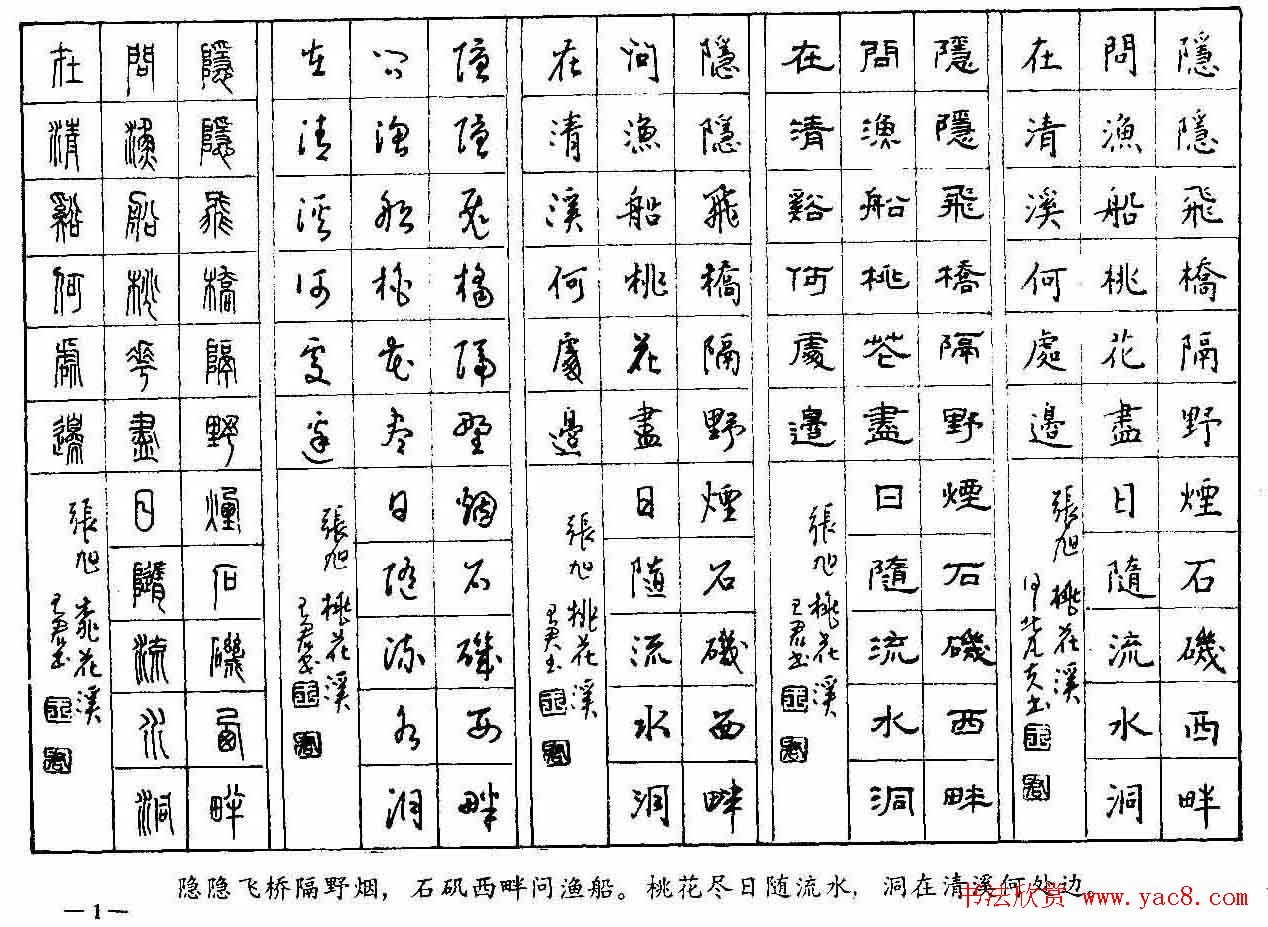 隱隱飛橋隔野煙石磯西畔
問漁船桃花盡日隨流水洞
在清溪何處邊
張旭 桃花溪
隱隱飛橋隔野煙石磯西畔
問漁船桃花盡日隨流水洞
在清谿何處邊
張旭 桃花溪
隱隱飛橋隔野煙石磯西畔
問漁船桃花盡日隨流水洞
在清溪何處邊
張旭 桃花溪
隱隱飛橋隔野煙石磯西畔
問漁船桃花盡日隨流水洞
在清溪何處邊
張旭 桃花溪
隱隱飛橋隔野煙石磯西畔
問漁船桃華盡日隨流水洞
在清谿何處邊
張旭 桃花溪
隐隐飞桥隔野烟，石矶西畔问渔船。桃花尽日随流水，洞在清溪何处边。
书法欣赏 www.yac8.com
—1—